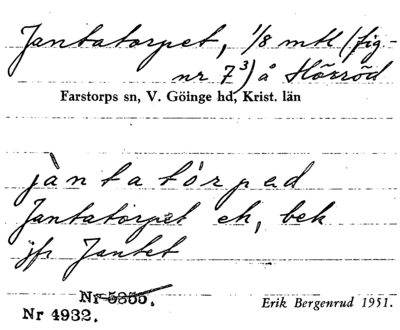 Jantatorpet, 1/8 mtl (fig-
nr 7³) å Hörröd
Farstorps sn, V. Göinge hd, Krist. län
jàntatórped
Jantatorpet eh, bek
jfr Jantet
Nr 5355.
Nr 4932.
Erik Bergenrud 1951.